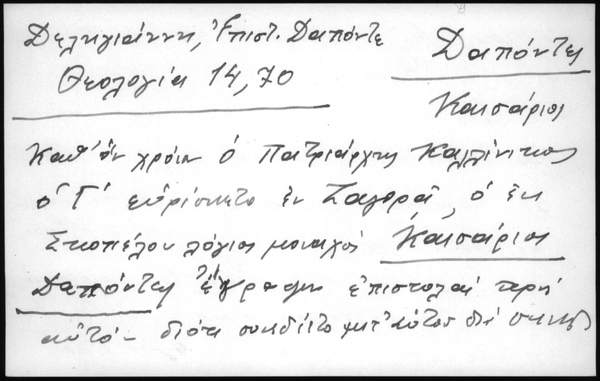 Δεληγιάννη, Ἐπιστ. Δαπόντε
Δαπόντες
Θεολογία 14, 70
Καισάριος
Καθ' ὃν χρόνον ὁ Πατριάρχης Καλλίνικος
ὁ Γ' εὑρίσκετο ἐν Ζαγορᾷ, ὁ ἐκ
Σκοπέλου λόγιος μοναχός Καισάριος
Δαπόντες ἔγραφεν ἐπιστολάς πρός
αὐτόν διότι συνεδέετο μετ' αὐτοῦ διά